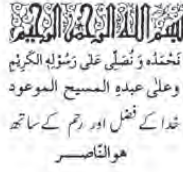 بسم الله الرحمن الرحيم
نَحْمَدُهٗ وَ نُصَلِّی عَلٰی رَسُوْلِهِ الْكَرِيْمِ
وعلٰی عبدہِ المسیح الموعود
خدا کے فضل اور رحم کے ساتھ
ھوالنّاصـــر